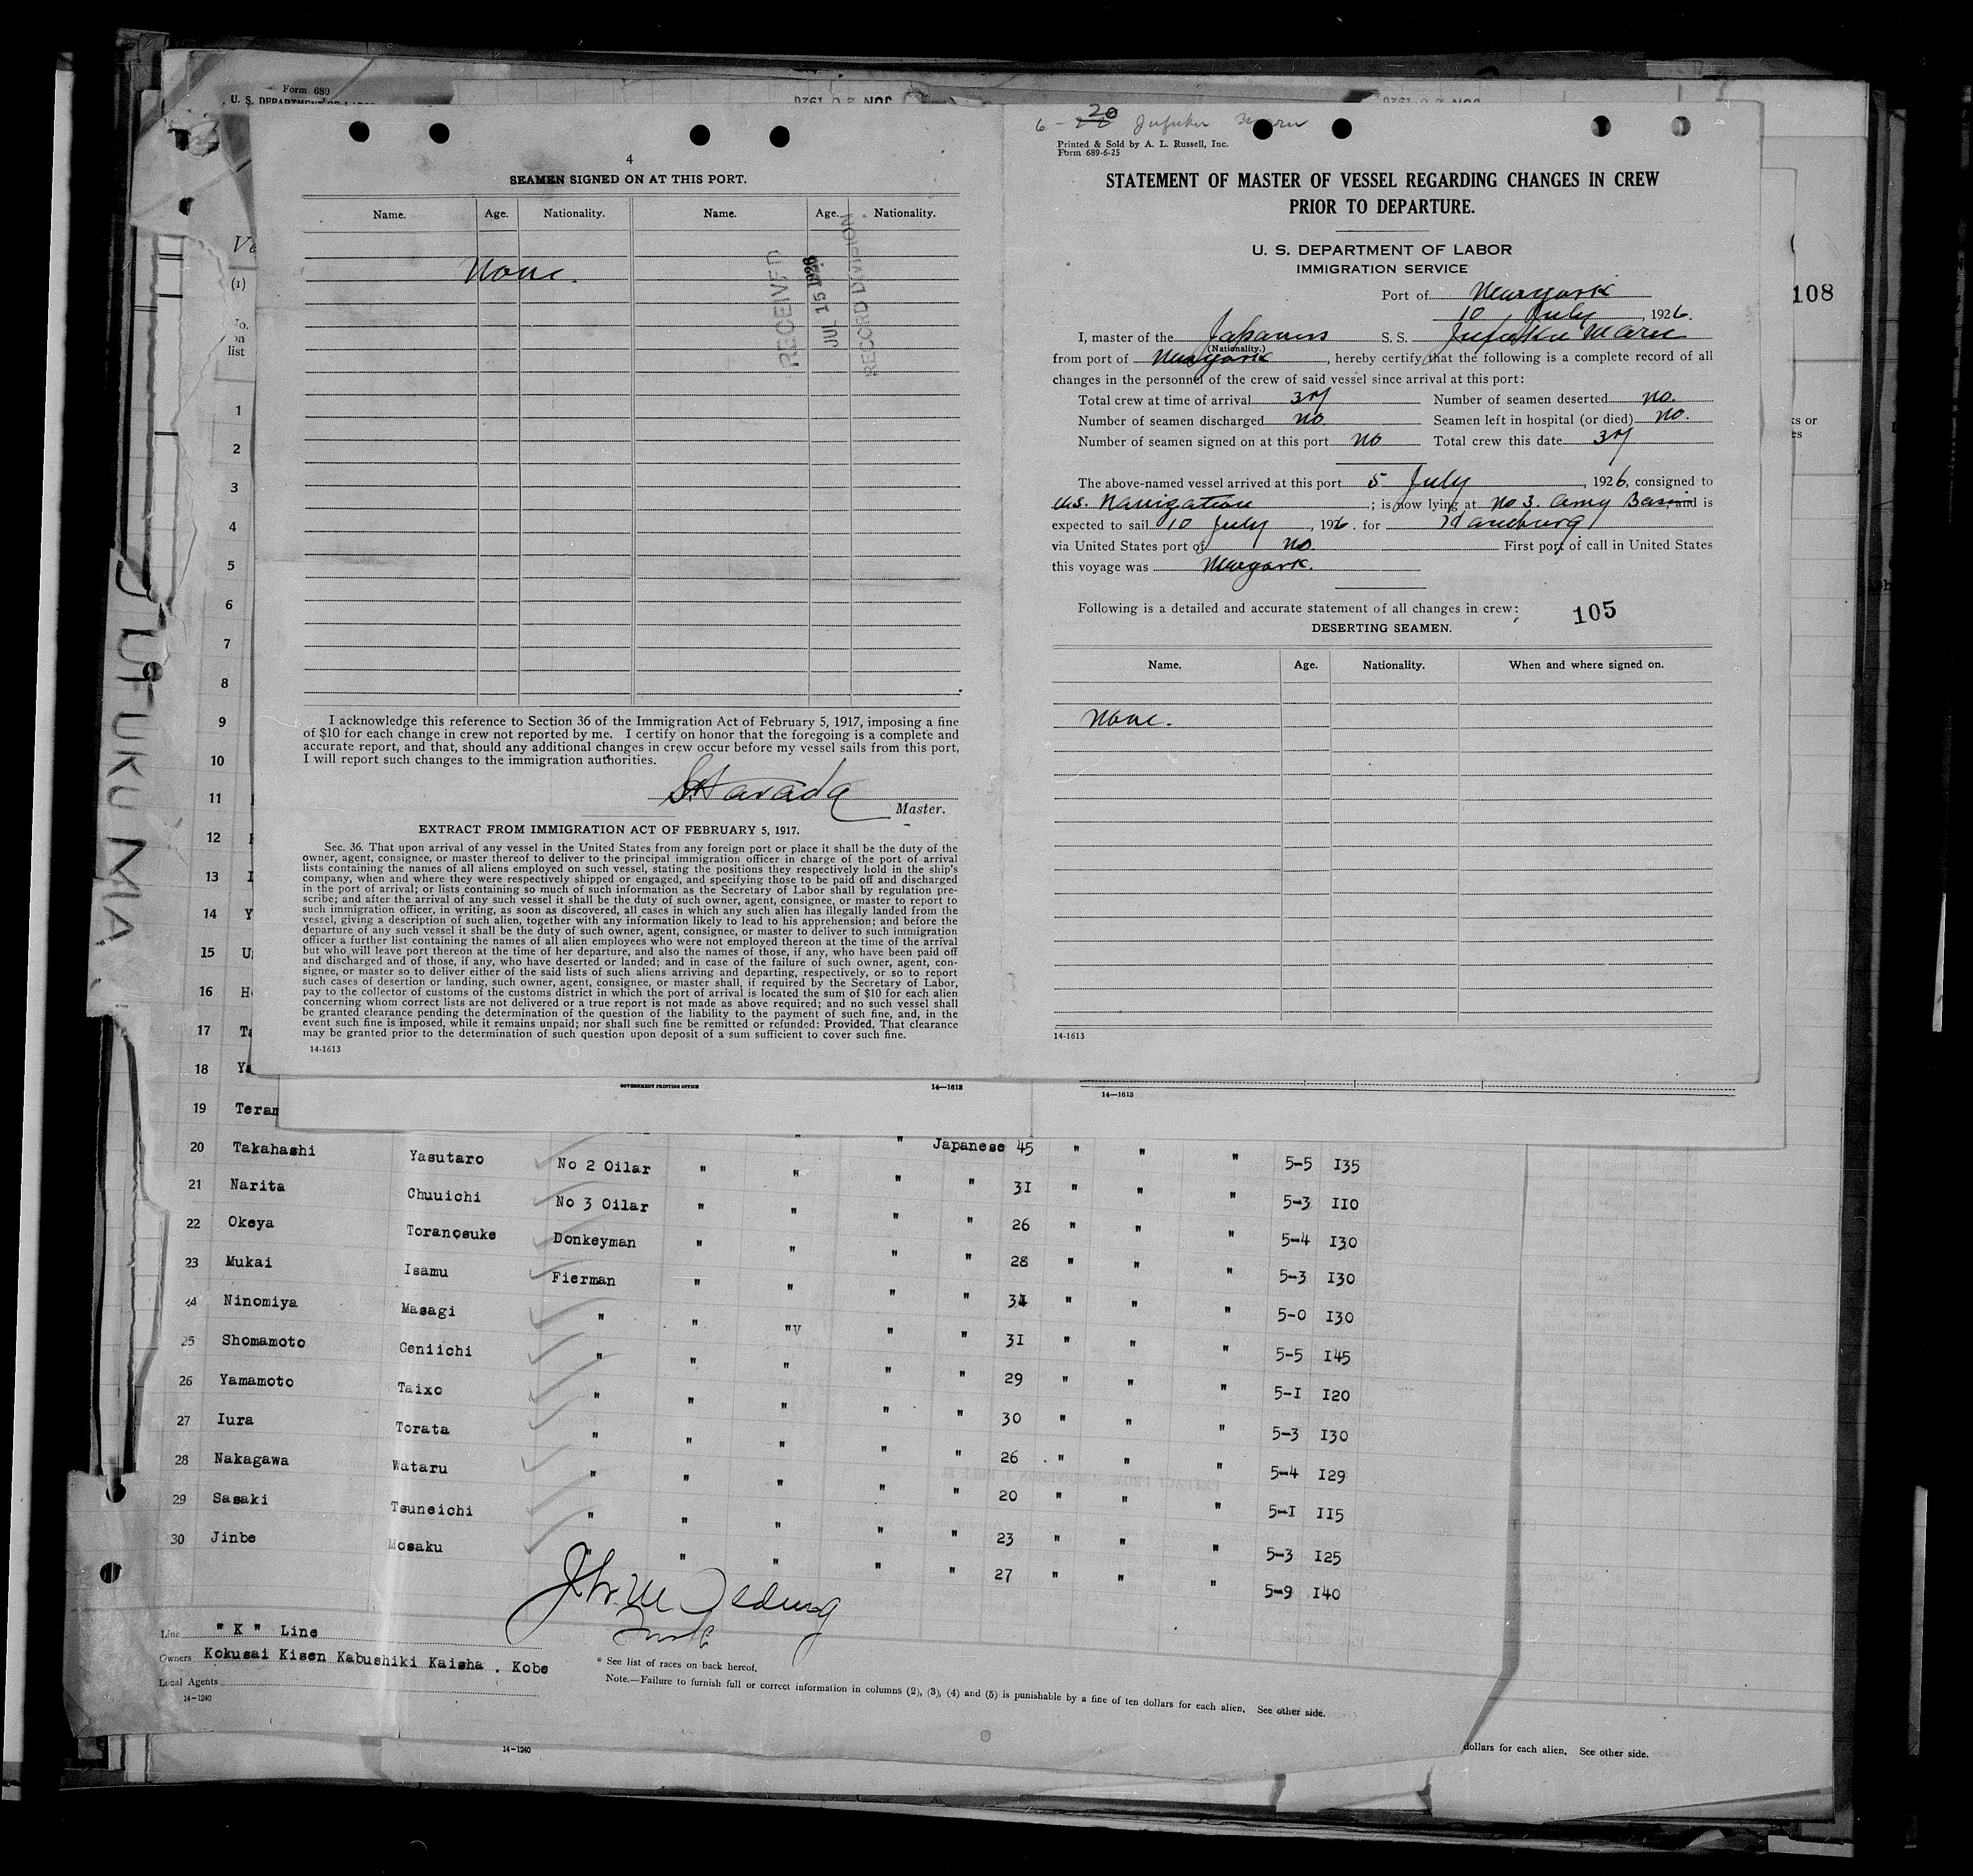 Form 680
U. S. DEPARTMENT OF LABOR
JUN 20 1926
JUN 20 1926
4
SEAMEN SIGNED ON AT THIS PORT.
Name. Age. Nationality. Name. Age. Nationality.
None.
RECEIVED
JUL 15 1926
RECORD DIVISION
I acknowledge this reference to Section 36 of the Immigration Act of February 5, 1917, imposing a fine
of $10 for each change in crew not reported by me. I certify on honor that the foregoing is a complete and
accurate report, and that, should any additional changes in crew occur before my vessel sails from this port,
I will report such changes to the immigration authorities.
S. Harada
Master.
EXTRACT FROM IMMIGRATION ACT OF FEBRUARY 5, 1917.
Sec. 36. That upon arrival of any vessel in the United States from any foreign port or place it shall be the duty of the
owner, agent, consignee, or master thereof to deliver to the principal immigration officer in charge of the port of arrival
lists containing the names of all aliens employed on such vessel, stating the positions they respectively hold in the ship's
company, when and where they were respectively shipped or engaged, and specifying those to be paid off and discharged
in the port of arrival; or lists containing so much of such information as the Secretary of Labor shall by regulation pre-
scribe; and after the arrival of any such vessel it shall be the duty of such owner, agent, consignee, or master to report to
such immigration officer, in writing, as soon as discovered, all cases in which any such alien has illegally landed from the
vessel, giving a description of such alien, together with any information likely to lead to his apprehension; and before the
departure of any such vessel it shall be the duty of such owner, agent, consignee, or master to deliver to such immigration
officer a further list containing the names of all alien employees who were not employed thereon at the time of the arrival
but who will leave port thereon at the time of her departure, and also the names of those, if any, who have been paid off
and discharged and of those, if any, who have deserted or landed; and in case of the failure of such owner, agent, con-
signee, or master so to deliver either of the said lists of such aliens arriving and departing, respectively, or so to report
such cases of desertion or landing, such owner, agent, consignee, or master shall, if required by the Secretary of Labor,
pay to the collector of customs of the customs district in which the port of arrival is located the sum of $10 for each alien
concerning whom correct lists are not delivered or a true report is not made as above required; and no such vessel shall
be granted clearance pending the determination of the question of the liability to the payment of such fine, and, in the
event such fine is imposed, while it remains unpaid; nor shall such fine be remitted or refunded: Provided, That clearance
may be granted prior to the determination of such question upon deposit of a sum sufficient to cover such fine.
14-1613
6 - 20 Jufuku Maru
Printed & Sold by A. L. Russell, Inc.
Form 689-6-25
STATEMENT OF MASTER OF VESSEL REGARDING CHANGES IN CREW
PRIOR TO DEPARTURE.
U. S. DEPARTMENT OF LABOR
IMMIGRATION SERVICE
Port of Newyork
10 July, 1926.
I, master of the Japaness S. S. Jufuku Maru
(Nationality.)
from port of Newyork, hereby certify that the following is a complete record of all
changes in the personnel of the crew of said vessel since arrival at this port:
Total crew at time of arrival 37 Number of seamen deserted no.
Number of seamen discharged no Seamen left in hospital (or died) no.
Number of seamen signed on at this port no Total crew this date 37
The above-named vessel arrived at this port 5 July, 1926, consigned to
U.S. Navigation; is now lying at No 3. Army Basin, and is
expected to sail 10 July, 1926. for Hamburg
via United States port of no. First port of call in United States
this voyage was Newyork.
Following is a detailed and accurate statement of all changes in crew:
105
DESERTING SEAMEN.
Name. Age. Nationality. When and where signed on.
None.
14-1613
108
JUFUKU MA
Ve
(1)
No.
on
list
1
2
3
4
5
6
7
8
9
10
11
12
13 I
14 Y
15 U
16 H
17 Ta
18 Ya
GOVERNMENT PRINTING OFFICE 14—1613
14—1613
19 Teram
20 Takahashi Yasutaro No 2 Oilar " " " Japanese 45 " " " 5-5 I35
21 Narita Chuuichi No 3 Oilar " " " " 31 " " " 5-3 II0
22 Okeya Toranosuke Donkeyman " " " " 26 " " " 5-4 I30
23 Mukai Isamu Fierman " " " " 28 " " " 5-3 I30
24 Ninomiya Masagi " " " " " " " " 5-0 I30
25 Shomamoto Geniichi " " " " " 31 " " " 5-5 I45
26 Yamamoto Taixo " " " " " 29 " " " 5-I I20
27 Iura Torata " " " " " 30 " " " 5-3 I30
28 Nakagawa Wataru " " " " " 26 " " " 5-4 I29
29 Sasaki Tsuneichi " " " " " 20 " " " 5-I II5
30 Jinbe Mosaku " " " " " 23 " " " 5-3 I25
" " " 27 " " " 5-9 I40
Line " K " Line
Owners Kokusai Kisen Kabushiki Kaisha . Kobe
Local Agents
14-1240
* See list of races on back hereof.
Note.—Failure to furnish full or correct information in columns (2), (3), (4) and (5) is punishable by a fine of ten dollars for each alien. See other side.
14-1240
dollars for each alien. See other side.